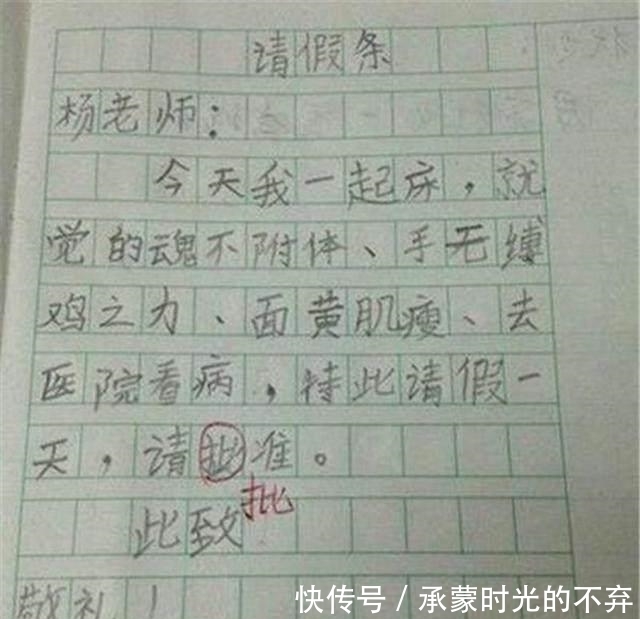 请假条
杨老师：
今天我一起床，就
觉的魂不附体、手无缚
鸡之力、面黄肌瘦、去
医院看病，特此请假一
天，请批准。
批
此致
敬礼！
快传号/承蒙时光的不弃